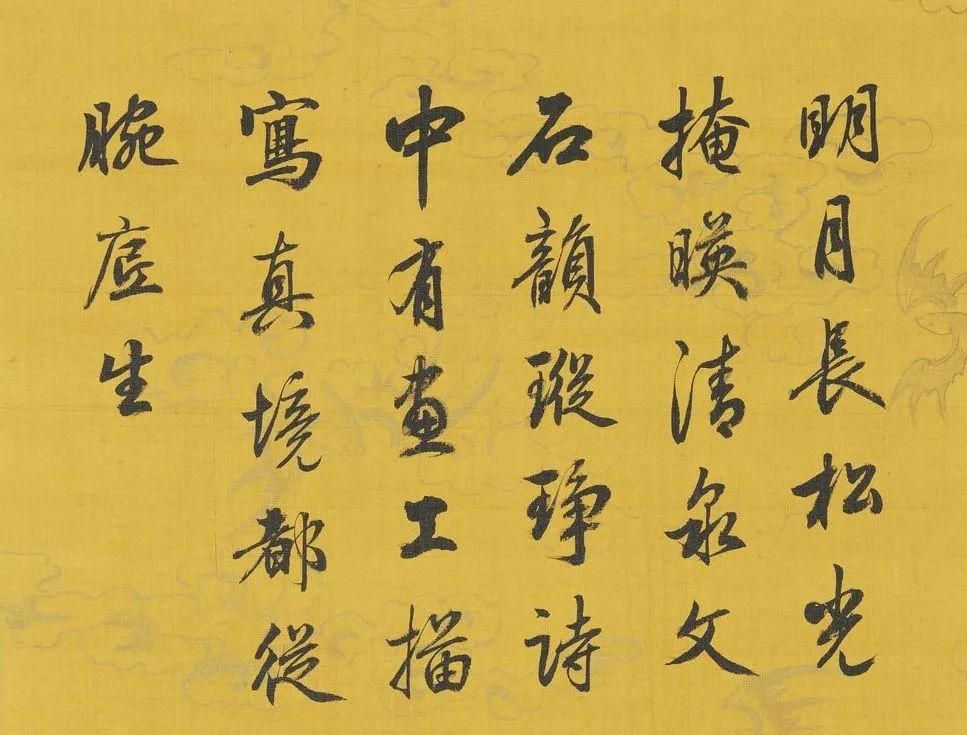 明月長松光
掩暎清泉文
石韻瑽琤詩
中有畫工描
寫真境都從
腕虛生